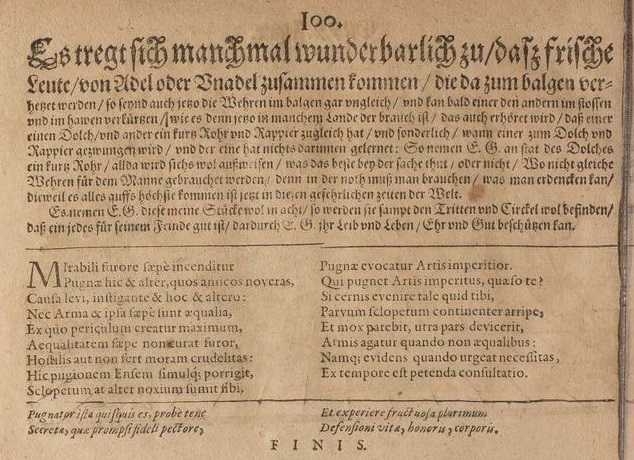 100.
Es tregt sich manchmal wunderbarlich zu/ dasz frische
Leute/ von Adel oder Vnadel zusammen kommen/ die da zum balgen ver-
hetzet werden/ so seynd auch jetzo die Wehren im balgen gar vngleich/ vnd kan bald einer den andern im stossen
vnd im hawen verkürtzen/ wie es denn jetzo in manchem Lande der brauch ist/ das auch erhöret wird/ daß einer
einen Dolch/ vnd ander ein kurtz Rohr vnd Rappier zugleich hat/ vnd sonderlich/ wann einer zum Dolch vnd
Rappier gezwungen wird/ vnd der eine hat nichts darinnen gelernet: So nemen E. G. an stat des Dolches
ein kurtz Rohr/ allda wird sichs wol außweisen/ was das beste bey der sache thut/ oder nicht/ Wo nicht gleiche
Wehren für dem Manne gebrauchet werden/ denn in der noth muß man brauchen/ was man erdencken kan/
dieweil es alles auffs höchste kommen ist jetzt in diesen gefehrlichen zeiten der Welt.
Es nemen E. G. diese meine Stücke wol in acht/ so werden sie sampt den Tritten vnd Circkel wol befinden/
daß ein jedes für seinem Feinde gut ist/ dardurch E. G. jhr Leib vnd Leben/ Ehr vnd Gut beschützen kan.
MIrabili furore sæpè incenditur
Pugnæ hic & alter, quos amicos noveras,
Causa levi, instigante & hoc & altero:
Nec Arma & ipsa sæpè sunt æqualia,
Ex quo periculum creatur maximum,
Aequalitatem sæpe non curat furor,
Hostilis aut non fert moram crudelitas:
Hic pugionem Ensem simulq; porrigit,
Sclopetum at alter noxium sumit sibi,
Pugnæ evocatur Artis imperitior.
Qui pugnet Artis imperitus, quæso te?
Si cernis evenire tale quid tibi,
Parvum sclopetum continenter arripe,
Et mox patebit, utra pars devicerit,
Armis agatur quando non æqualibus:
Namq; evidens quando urget necessitas,
Ex tempore est petenda consultatio.
Pugnator ista quisquis es, probe tene
Secreta, quæ prompsi fideli pectore,
Et experiere fructuosa plurimum
Defensioni vitæ, honoris, corporis.
FINIS.